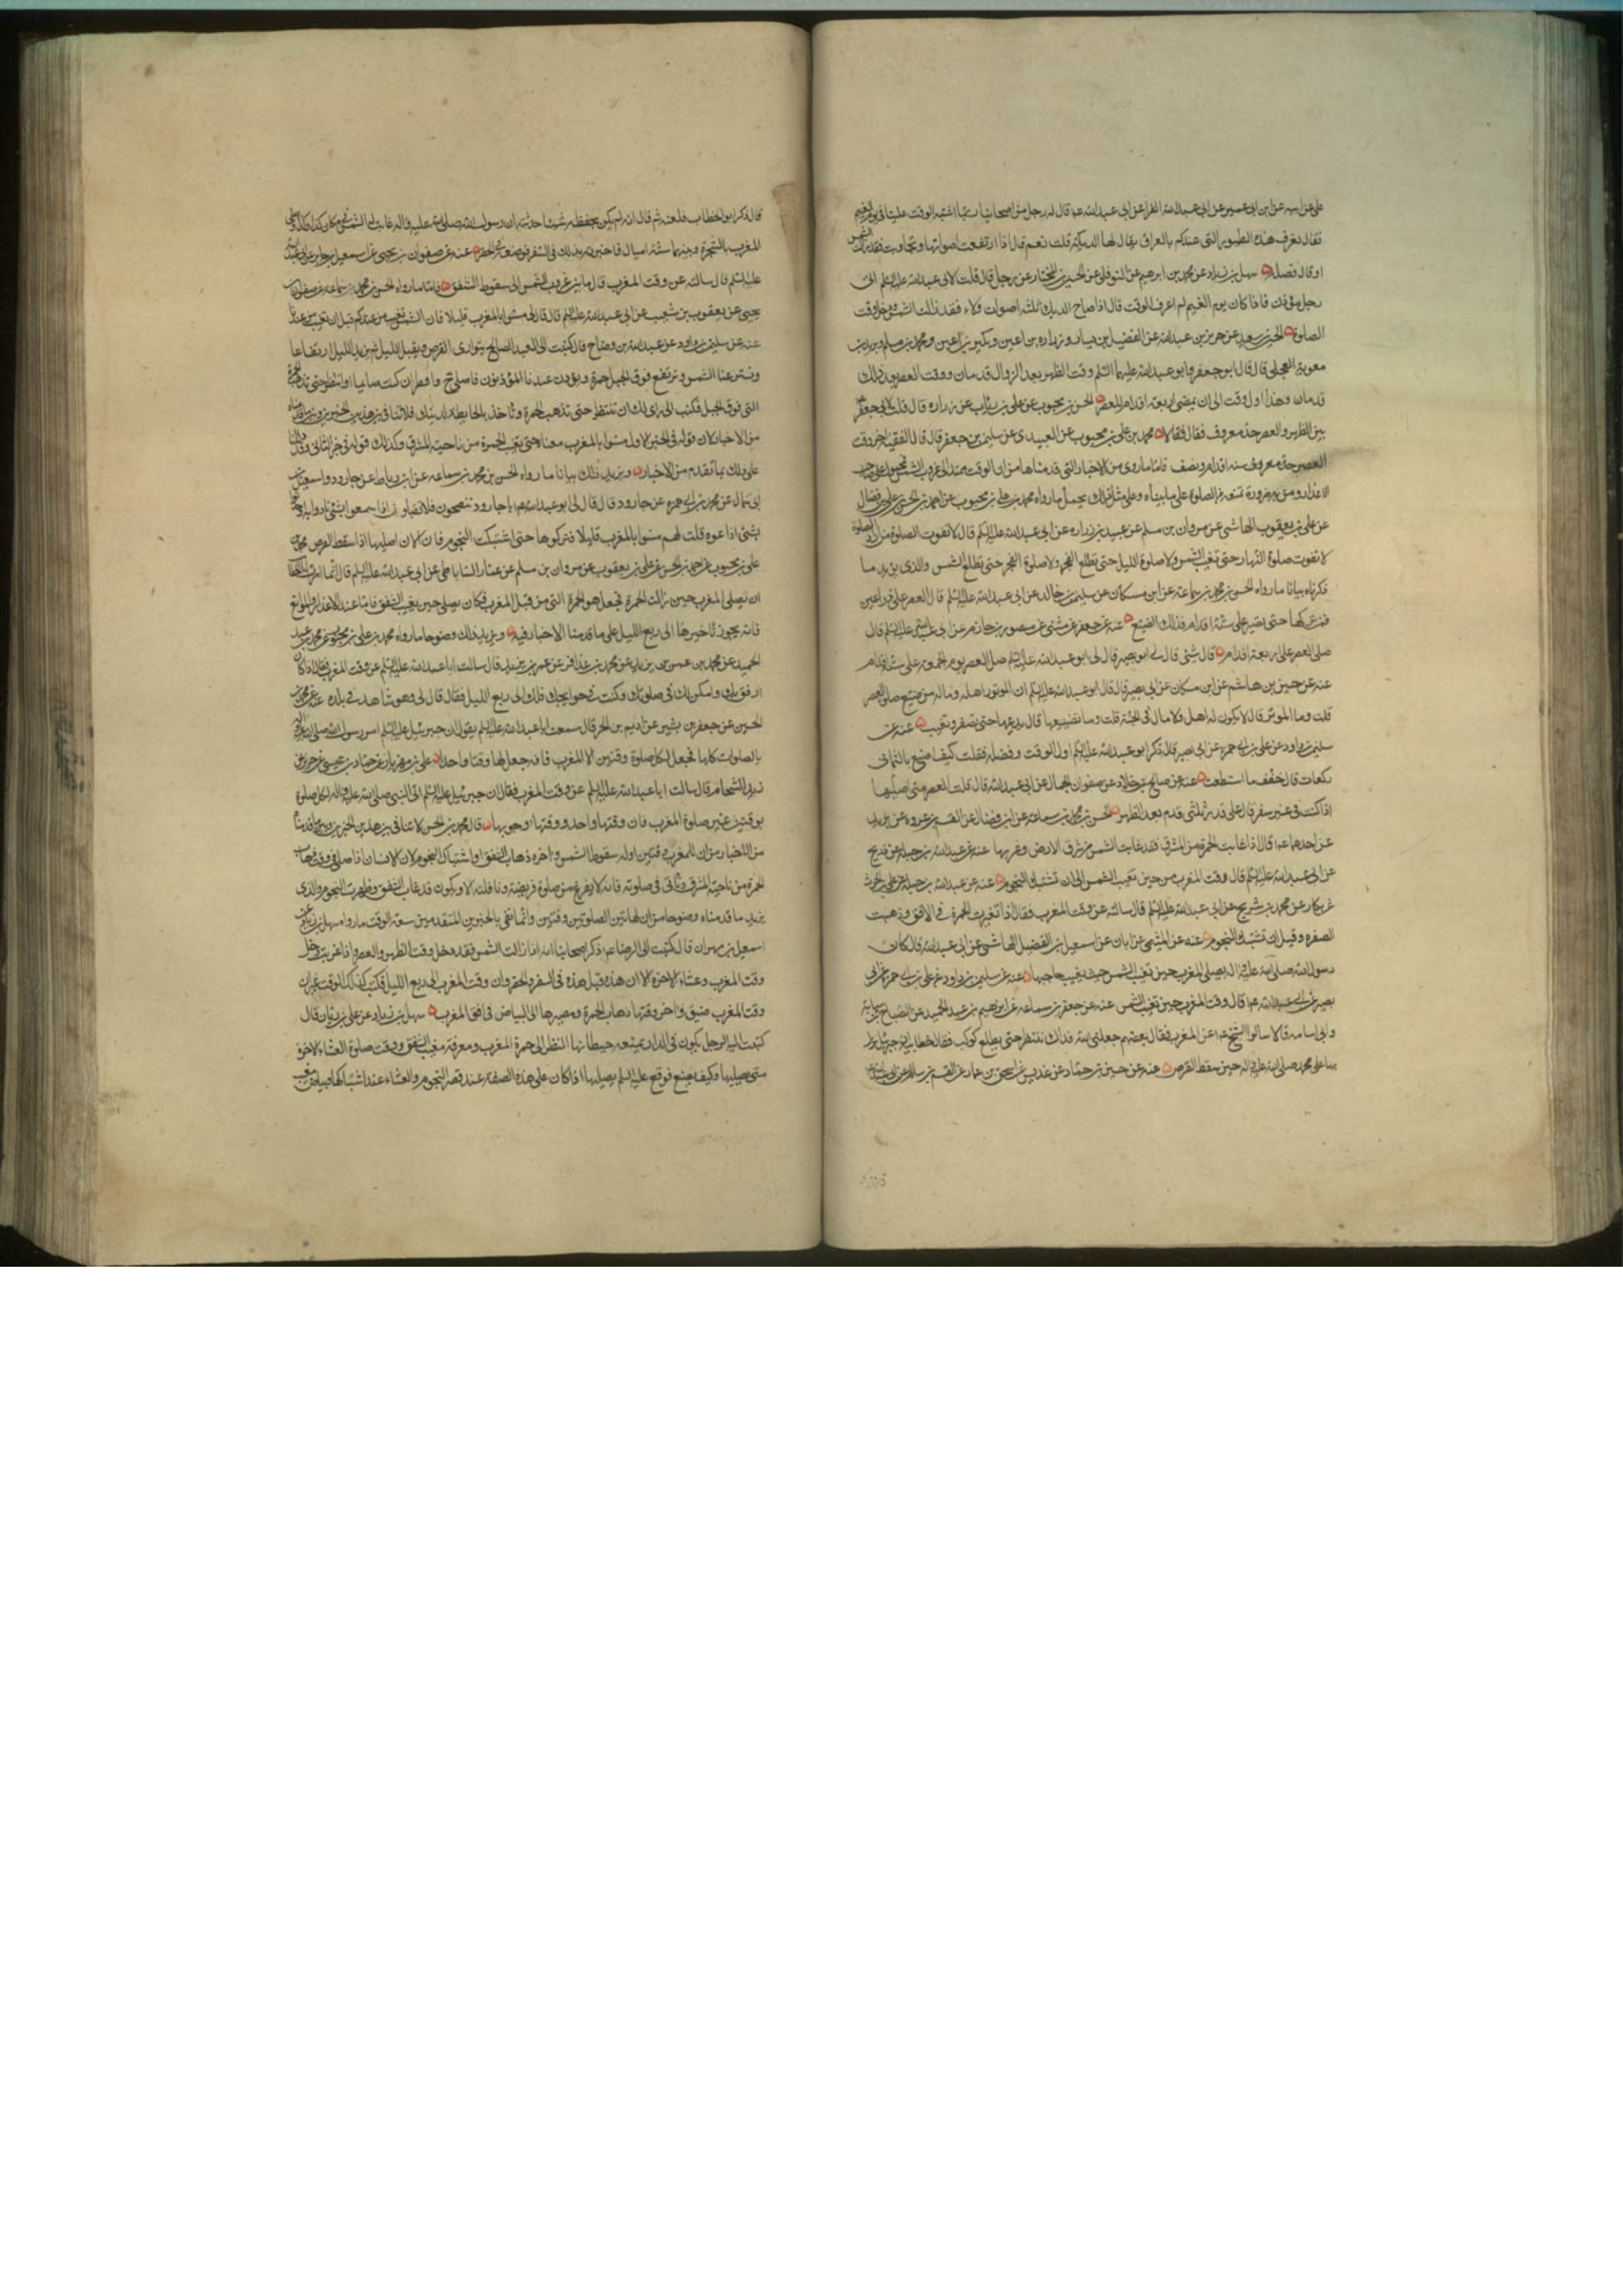 على عن ابيه عن ابن ابى عمير عن ابى عبد الله الفراء عن ابى عبد الله ع قال له رجل من اصحابنا ربما اشتبه الوقت علينا فى يوم الغيم
فقال تعرف هذه الطيور التى عندكم بالعراق يقال لها الديكة قلت نعم قال اذا ارتفعت اصواتها وتجاوبت فقد زالت الشمس
او قال فصله سهل بن زياد عن محمد بن ابراهيم عن النوفلى عن الحسين بن المختار عن رجل قال قلت لابى عبد الله عليه السلم انى
رجل مؤذن فاذا كان يوم الغيم لم اعرف الوقت قال اذا صاح الديك ثلثه اصوات ولاء فقد زالت الشمس ودخل وقت
الصلوة الحسين بن سعيد عن حريز بن عبد الله عن الفضيل بن يسار وزراره بن اعين وبكير بن اعين ومحمد بن مسلم وبريد بن
معوية العجلى قال قال ابو جعفر وابو عبد الله عليهما السلم وقت الظهر بعد الزوال قدمان ووقت العصر بعد ذلك
قدمان وهذا اول وقت الى ان يمضى اربعة اقدام للعصر الحسن بن محبوب عن على بن رئاب عن زراره قال قلت لابى جعفر ع
بين الظهر والعصر حد معروف فقال لا محمد بن على بن محبوب عن العبيدى عن سليمن بن جعفر قال قال الفقيه اخر وقت
العصر ستة اقدام ونصف فاما ما روى من الاخبار التى قدمناها من ان الوقت ممتد الى غروب الشمس فمحمول على
على ما بيناه وعلى مثل ذلك يحمل ما رواه محمد بن على بن محبوب عن احمد بن الحسن بن على بن فضال
عن على بن يعقوب الهاشمى عن مروان بن مسلم عن عبيد بن زراره عن ابى عبد الله عليه السلم قال لا تفوت الصلوة من اراد الصلوة
لا تفوت صلوة النهار حتى تغيب الشمس ولا صلوة الليل حتى يطلع الفجر ولا صلوة الفجر حتى تطلع الشمس والذى يزيد ما
ذكرناه بيانا ما رواه الحسن بن محمد بن سماعة عن ابن مسكان عن سليمن بن خالد عن ابى عبد الله عليه السلم قال العصر على ذراعين
فمن تركها حتى تصير على ستة اقدام فذلك المضيع عنه عن جعفر عن مثنى عن منصور بن حازم عن ابى عبد الله عليه السلم قال
صلى العصر على اربعة اقدام قال مثنى قال لى ابو بصير قال لى ابو عبد الله عليه السلم صل العصر يوم الجمعة على ستة اقدام
عنه عن حسين بن هاشم عن ابن مسكان عن ابى بصير قال قال ابو عبد الله عليه السلم ان الموتور اهله وماله من ضيع صلوة العصر
قلت وما الموتور قال لا يكون له اهل ولا مال فى الجنة قلت وما تضييعها قال يدعها حتى تصفر وتغيب عنه عن
سليمن بن داود عن على بن ابى حمزه عن ابى بصير قال ذكر ابو عبد الله عليه السلم اول الوقت وفضله فقلت كيف اصنع بالثمانى
ركعات قال خفف ما استطعت عنه عن صالح بن خالد عن صفوان الجمال عن ابى عبد الله قال قلت العصر متى اصليها
اذا كنت فى غير سفر قال على قدر ثلثى قدم بعد الظهر الحسن بن محمد بن سماعة عن ابن فضال عن القسم بن عروه عن بريد
عن احدهما ع قال اذا غابت الحمرة من المشرق فقد غابت الشمس من شرق الارض وغربها عنه عن عبد الله بن جبلة عن ذريح
عن ابى عبد الله عليه السلم قال وقت المغرب من حين تغيب الشمس الى ان تشتبك النجوم عنه عن عبد الله بن جبله عن على بن الحرث
عن بكار عن محمد بن شريح عن ابى عبد الله عليه السلم قال سالته عن وقت المغرب فقال اذا تغيرت الحمرة فى الافق وذهبت
الصفرة وقبل ان تشتبك النجوم عنه عن الميثمى عن ابان عن اسمعيل بن الفضل الهاشمى عن ابى عبد الله قال كان
رسول الله صلى الله عليه واله يصلى المغرب حين تغيب الشمس حيث يغيب حاجبها عنه عن سليمن بن داود عن على بن ابى حمزه عن ابى
بصير عن ابى عبد الله ع قال وقت المغرب حين تغيب الشمس عنه عن جعفر بن سماعه عن ابراهيم بن عبد الحميد عن الصباح بن سيابه
وابى اسامه قالا سالوا الشيخ ع عن المغرب فقال بعضهم جعلنى الله فداك ننتظر حتى يطلع كوكب فقال خطابية ان جبرئيل نزل
بها على محمد صلى الله عليه واله حين سقط القرص
قال ذكر ابو الخطاب فلعنه ثم قال انه لم يكن يحفظ شيئا حدثته ان رسول الله صلى الله عليه واله غابت له الشمس فى مكان كذا وكذا وصلى
المغرب بالشجرة وبينهما ستة اميال فاخبرته بذلك فى السفر فوضعه فى الحضر عنه عن صفوان بن يحيى عن اسمعيل بن جابر عن ابى عبد الله
عليه السلم قال سالته عن وقت المغرب قال ما بين غروب الشمس الى سقوط الشفق فاما ما رواه الحسن بن محمد بن سماعه عن صفوان بن
يحيى عن يعقوب بن شعيب عن ابى عبد الله عليه السلم قال قال لى مسوا بالمغرب قليلا فان الشمس تغيب من عندكم قبل ان تغيب من عندنا
عنه عن سليمن بن داود عن عبد الله بن وضاح قال كتبت الى العبد الصالح يتوارى القرص ويقبل الليل ثم يزيد الليل ارتفاعا
وتستتر عنا الشمس وترتفع فوق الجبل حمرة ويؤذن عندنا المؤذنون فاصلى ح وافطر ان كنت صايما او انتظر حتى تذهب الحمرة
التى فوق الجبل فكتب الى ارى لك ان تنتظر حتى تذهب الحمرة وتاخذ بالحايطة لدينك فلا تنافى بين هذين الخبرين وبين ما قدمناه
من الاخبار لان قوله فى الخبر الاول مسوا بالمغرب معناه حتى يغيب الحمرة من ناحية المشرق وكذلك قوله فى خبر الثانى وقد دللنا
على ذلك بما تقدم من الاخبار ويزيد ذلك بيانا ما رواه الحسن بن محمد بن سماعه عن ابن رباط عن جارود او اسمعيل بن
ابى سمال عن محمد بن ابى حمزه عن جارود قال قال لى ابو عبد الله ع يا جارود تنصحون فلا تقبلون اذا سمعوا بشئ نادوا به او حدثوا
بشئ اذاعوه قلت لهم مسوا بالمغرب قليلا فتركوها حتى اشتبكت النجوم فانا الان اصليها اذا سقط القرص محمد بن
على بن محبوب عن احمد بن الحسن عن على بن يعقوب عن مروان بن مسلم عن عمار الساباطى عن ابى عبد الله عليه السلم قال انما امرت ابا الخطاب
ان يصلى المغرب حين زالت الحمرة فجعل هو الحمرة التى من قبل المغرب فكان يصلى حين يغيب الشفق فاما عند الاعذار والموانع
فانه يجوز تاخيرها الى ربع الليل على ما قدمنا الاخبار فيه ويزيد ذلك وضوحا ما رواه محمد بن على بن محبوب عن محمد بن عبد
الحميد عن محمد بن عمر بن يزيد عن محمد بن عذافر عن عمر بن يزيد قال سالت ابا عبد الله عليه السلم عن وقت المغرب فقال اذا كان
ارفق بك وامكن لك فى صلوتك وكنت فى حوايجك فلك الى ربع الليل فقال قال لى وهو شاهد فى بلده عنه عن محمد بن
الحسين عن جعفر بن بشير عن اديم بن الحر قال سمعت ابا عبد الله عليه السلم يقول ان جبرئيل عليه السلم امر رسول الله صلى الله عليه واله
بالصلوات كلها فجعل لكل صلوة وقتين الا المغرب فانه جعل لها وقتا واحدا على بن مهزيار عن حماد بن عيسى عن حريز عن
زيد الشحام قال سالت ابا عبد الله عليه السلم عن وقت المغرب فقال ان جبرئيل عليه السلم اتى النبى صلى الله عليه واله لكل صلوة
بوقتين غير صلوة المغرب فان وقتها واحد ووقتها وجوبها قال محمد بن الحسن لا تنافى بين هذين الخبرين وبين ما قدمنا
من الاخبار من ان للمغرب وقتين اوله سقوط الشمس واخره ذهاب الشفق او اشتباك النجوم لان الانسان اذا صلى فى وقت ذهاب
الحمرة من ناحية المشرق وتانى فى صلوته فانه لا يفرغ من صلوة فريضة ونافلته الا ويكون قد غاب الشفق وظهرت النجوم والذى
يزيد ما قدمناه وضوحا من ان لهاتين الصلوتين وقتين وانما نفى بالخبرين المتقدمين سعة الوقت ما رواه سهل بن زياد عن
اسمعيل بن مهران قال كتبت الى الرضا ع ذكر اصحابنا انه اذا زالت الشمس فقد دخل وقت الظهر والعصر واذا غربت دخل
وقت المغرب وعشاء الاخرة الا ان هذه قبل هذه فى السفر والحضر وان وقت المغرب الى ربع الليل فكتب كذلك الوقت غير ان
وقت المغرب ضيق واخر وقتها ذهاب الحمرة ومصيرها الى البياض فى افق المغرب سهل بن زياد عن على بن ريان قال
كتبت اليه الرجل يكون فى الدار يمنعه حيطانها النظر الى حمرة المغرب ومعرفة مغيب الشفق ووقت صلوة العشاء الاخرة
متى يصليها وكيف يصنع فوقع عليه السلم يصليها اذا كان على هذه الصفة عند قصر النجوم والعشاء عند اشتباكها وبياض مغيب